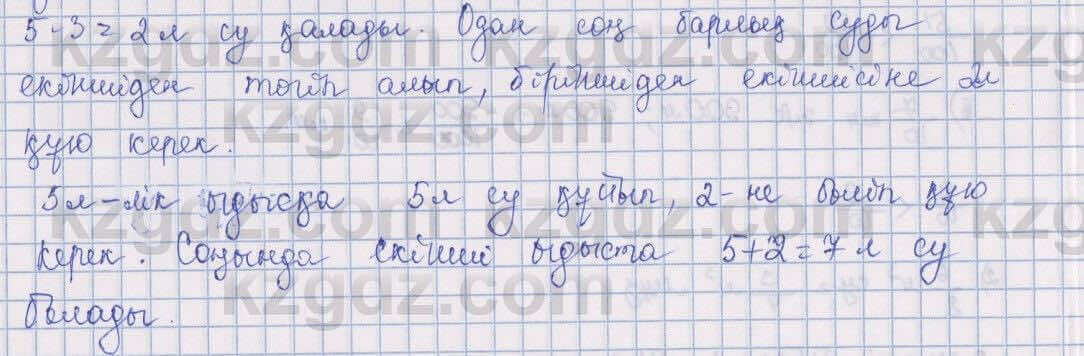 5-3=2л су қалады. Одан соң барлық суды
екіншіден төгіп алып, біріншіден екіншісіне 2л
құю керек.
5л-лік ыдысқа 5л су құйып, 2-не бөліп құю
керек. Соңында екінші ыдыста 5+2=7л су
болады.
kzgdz.com